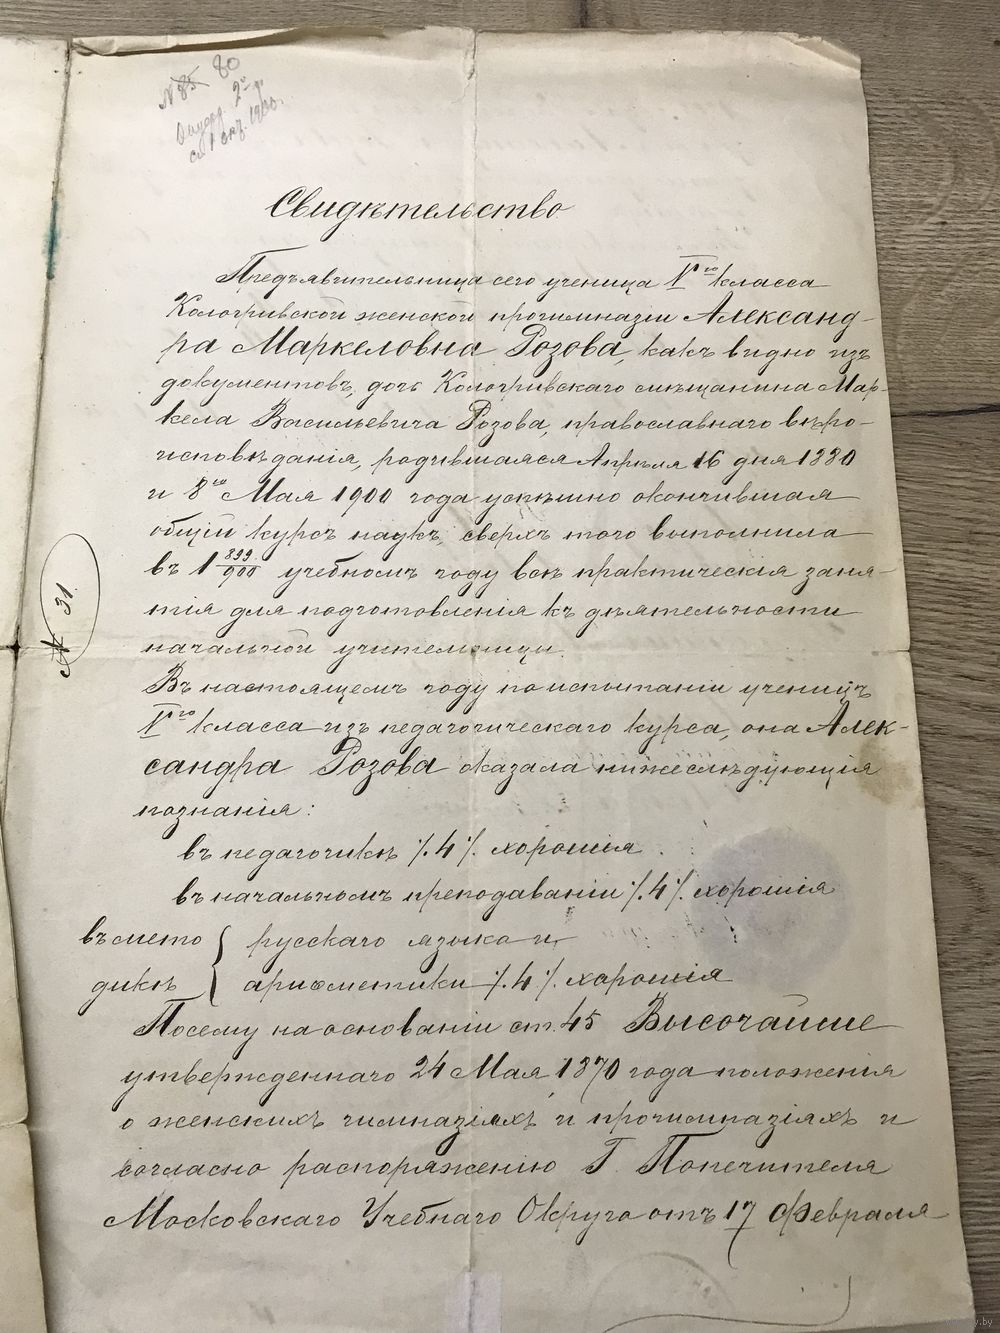 № 85 80
Свидѣтельство
Предъявительница сего ученица Vго класса
Кологривской женской прогимназіи Александ-
ра Маркеловна Розова, какъ видно изъ
документовъ, дочь Кологривскаго мѣщанина Мар-
кела Васильевича Розова, православнаго вѣро-
исповѣданія, родившаяся Апрѣля 16 дня 1880
и 8го Мая 1900 года успѣшно окончившая
общій курсъ наукъ, сверхъ того выполнила
въ 1 899/900 учебномъ году всѣ практическія заня-
тія для подготовленія къ дѣятельности
начальной учительницы.
№ 31.
Въ настоящемъ году по испытаніи ученицъ
Vго класса изъ педагогическаго курса, она Алек-
сандра Розова оказала нижеслѣдующія
познанія:
въ педагогикѣ /.4/. хорошія
въ начальномъ преподаваніи /.4/. хорошія
въ мето { русскаго языка и
дикѣ { ариѳметики /.4/. хорошія
Посему на основаніи ст. 45 Высочайше
утвержденнаго 24 Мая 1870 года положенія
о женскихъ гимназіяхъ и прогимназіяхъ и
согласно распоряженію Г. Попечителя
Московскаго Учебнаго Округа отъ 17 Февраля